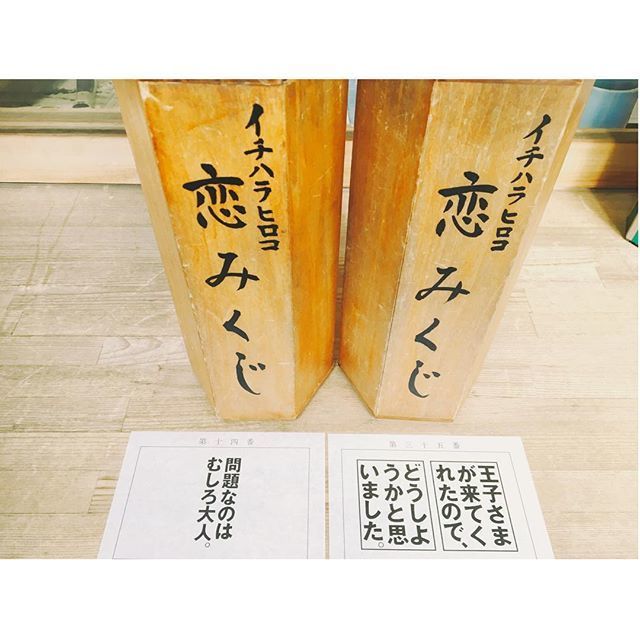 イチハラヒロコ
恋みくじ
イチハラヒロコ
恋みくじ
第十四番
問題なのは
むしろ大人。
第三十五番
王子さま
が来てく
れたので、
どうしよ
うかと思
いました。